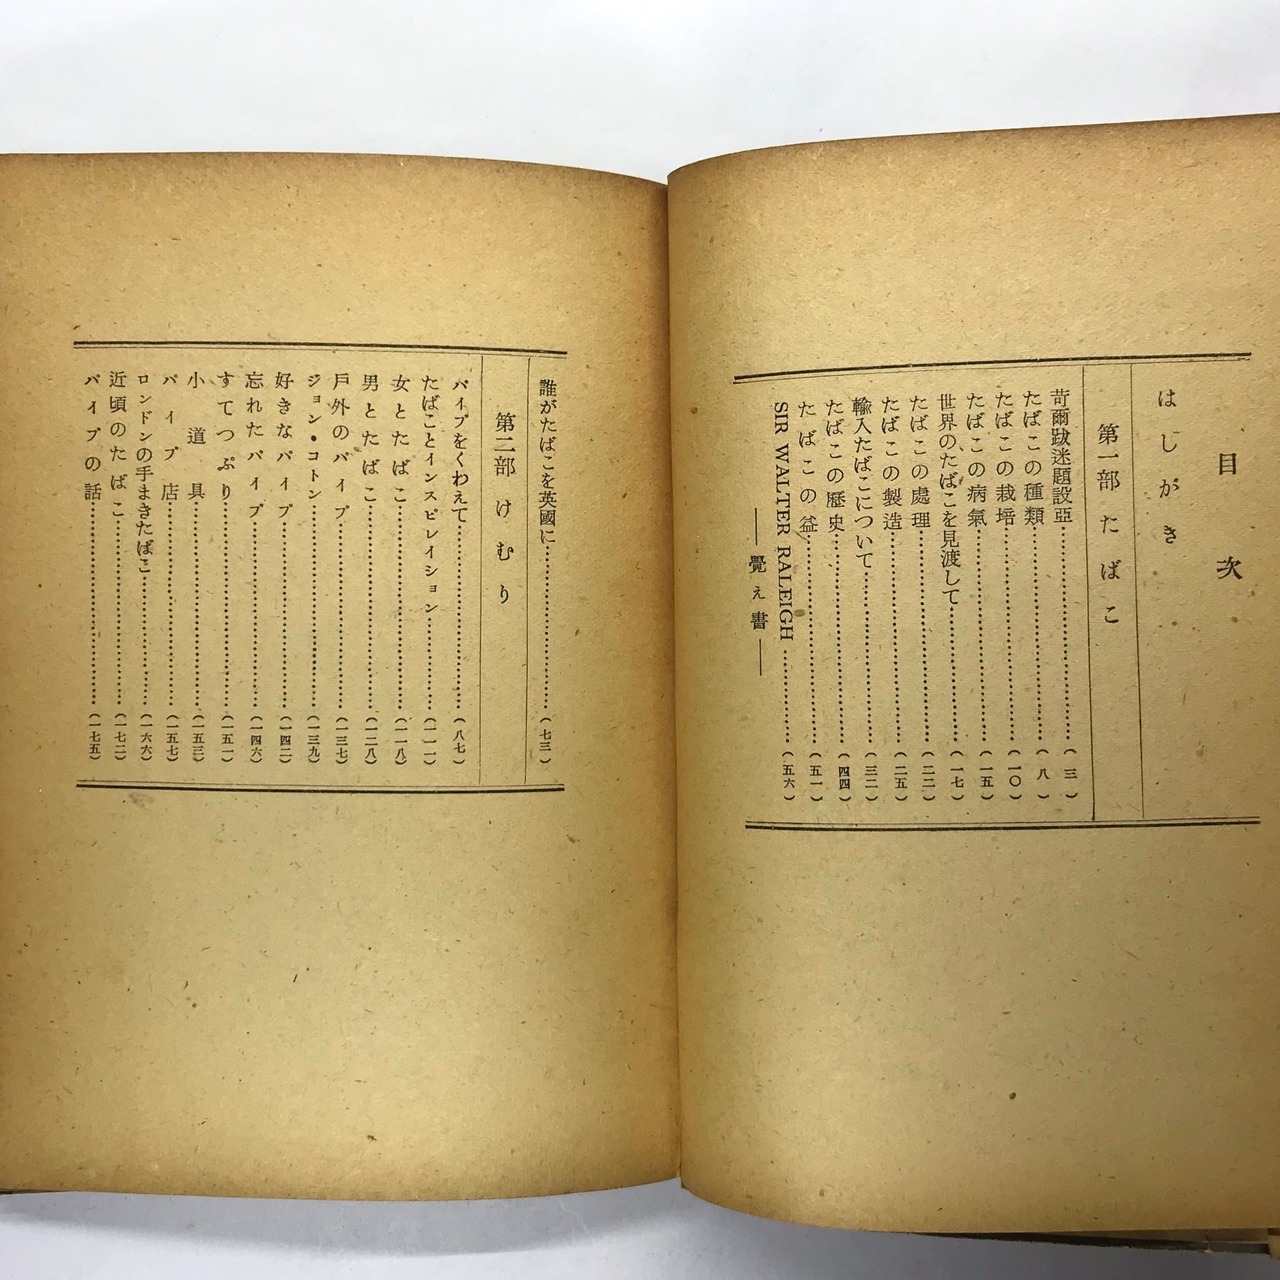 目次
はしがき
第一部 たばこ
苛爾跋迷題設亞……(三)
たばこの種類……(八)
たばこの栽培……(一〇)
たばこの病氣……(一五)
世界のたばこを見渡して……(一七)
たばこの處理……(二二)
たばこの製造……(二五)
輸入たばこについて……(三二)
たばこの歴史……(四四)
たばこの益……(五一)
SIR WALTER RALEIGH……(五六)
――覺え書――
誰がたばこを英國に……(七三)
第二部 けむり
パイプをくわえて……(八七)
たばことインスピレイション……(一一一)
女とたばこ……(一一八)
男とたばこ……(一二八)
戸外のパイプ……(一三七)
ジョン・コトン……(一三九)
好きなパイプ……(一四二)
忘れたパイプ……(一四六)
すてつぷり……(一五一)
小道具……(一五三)
パイプ店……(一五七)
ロンドンの手まきたばこ……(一六六)
近頃のたばこ……(一七二)
パイプの話……(一七五)